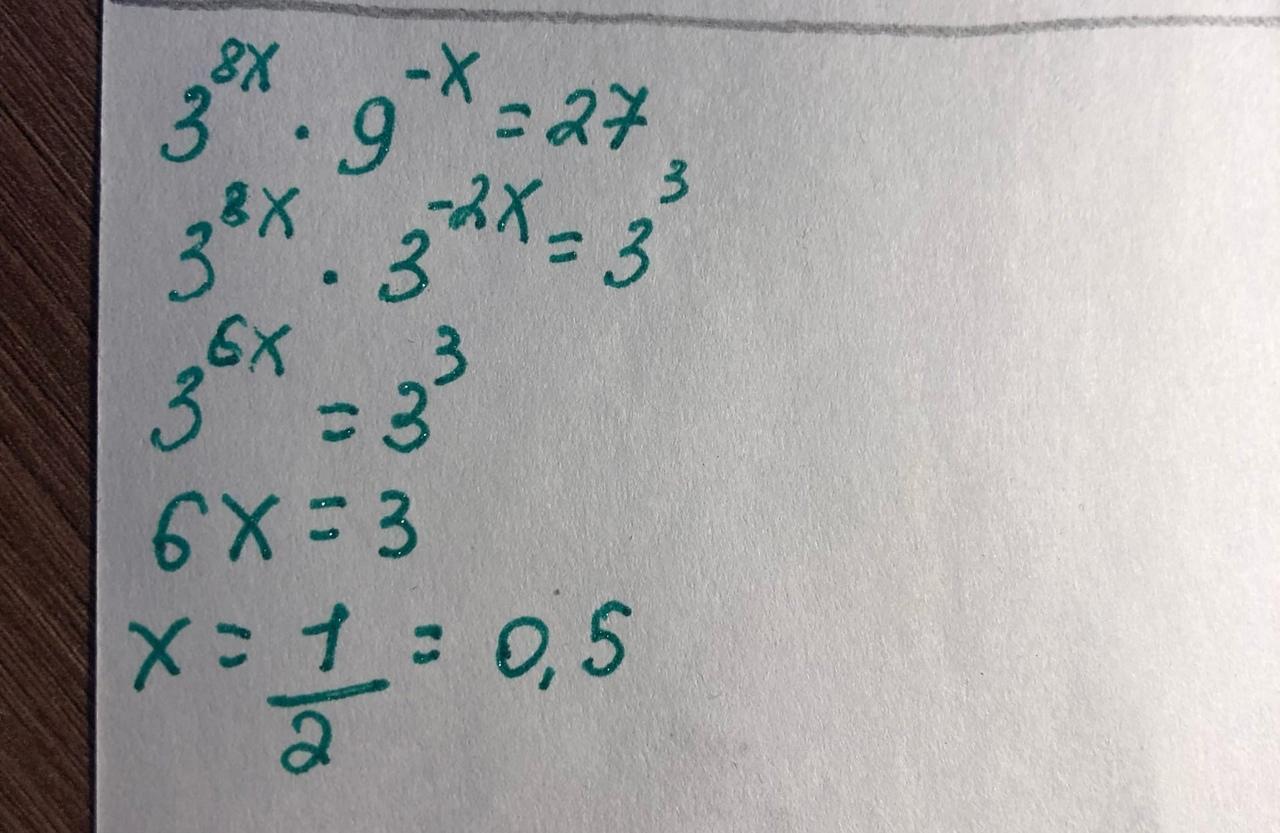 3^8x · 9^-x = 27
3^8x · 3^-2x = 3^3
3^6x = 3^3
6x = 3
x = 1/2 = 0,5